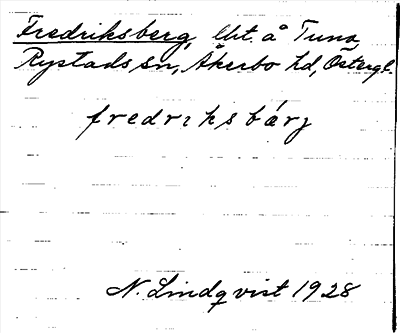 Fredriksberg, lht. å Tuna
Rystads sn, Åkerbo hd, Östergl.
fredriksbárj
N. Lindqvist 1928